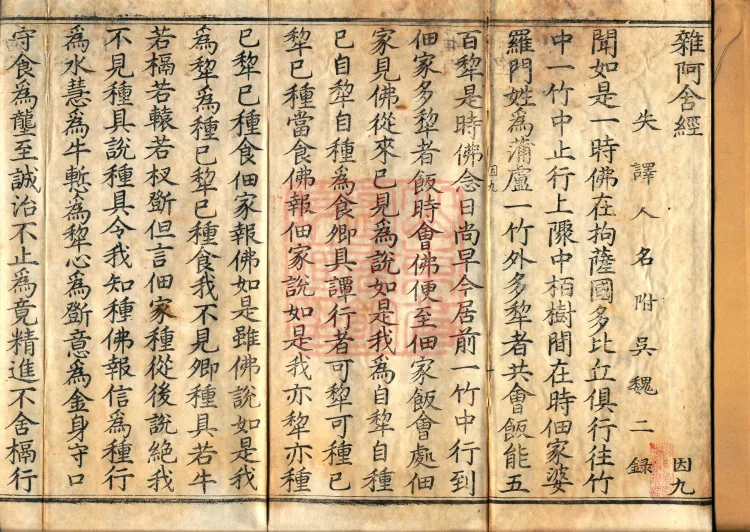 雜阿含經　因九
失譯人名附吳魏二錄
聞如是一時佛在拘薩國多比丘俱行往竹
中一竹中止行上隟中栢樹間在時佃家婆
羅門姓為蒲盧一竹外多犂者共會飯能五
因九
百犂是時佛念日尚早今居前一竹中行到
佃家多犂者飯時會佛便至佃家飯會處佃
家見佛從來已見為說如是我為自犂自種
已自犂自種為食卿具譚行者可犂可種已
犂已種當食佛報佃家說如是我亦犂亦種
已犂已種食佃家報佛如是雖佛說如是我
為犂為種已犂已種食我不見卿種具若牛
若槅若轅若杈斵但言佃家種從後說絕我
不見種具說種具令我知種佛報信為種行
為水慧為牛慙為犂心為斵意為金身守口
守食為壟至誠治不止為竟精進不舍槅行